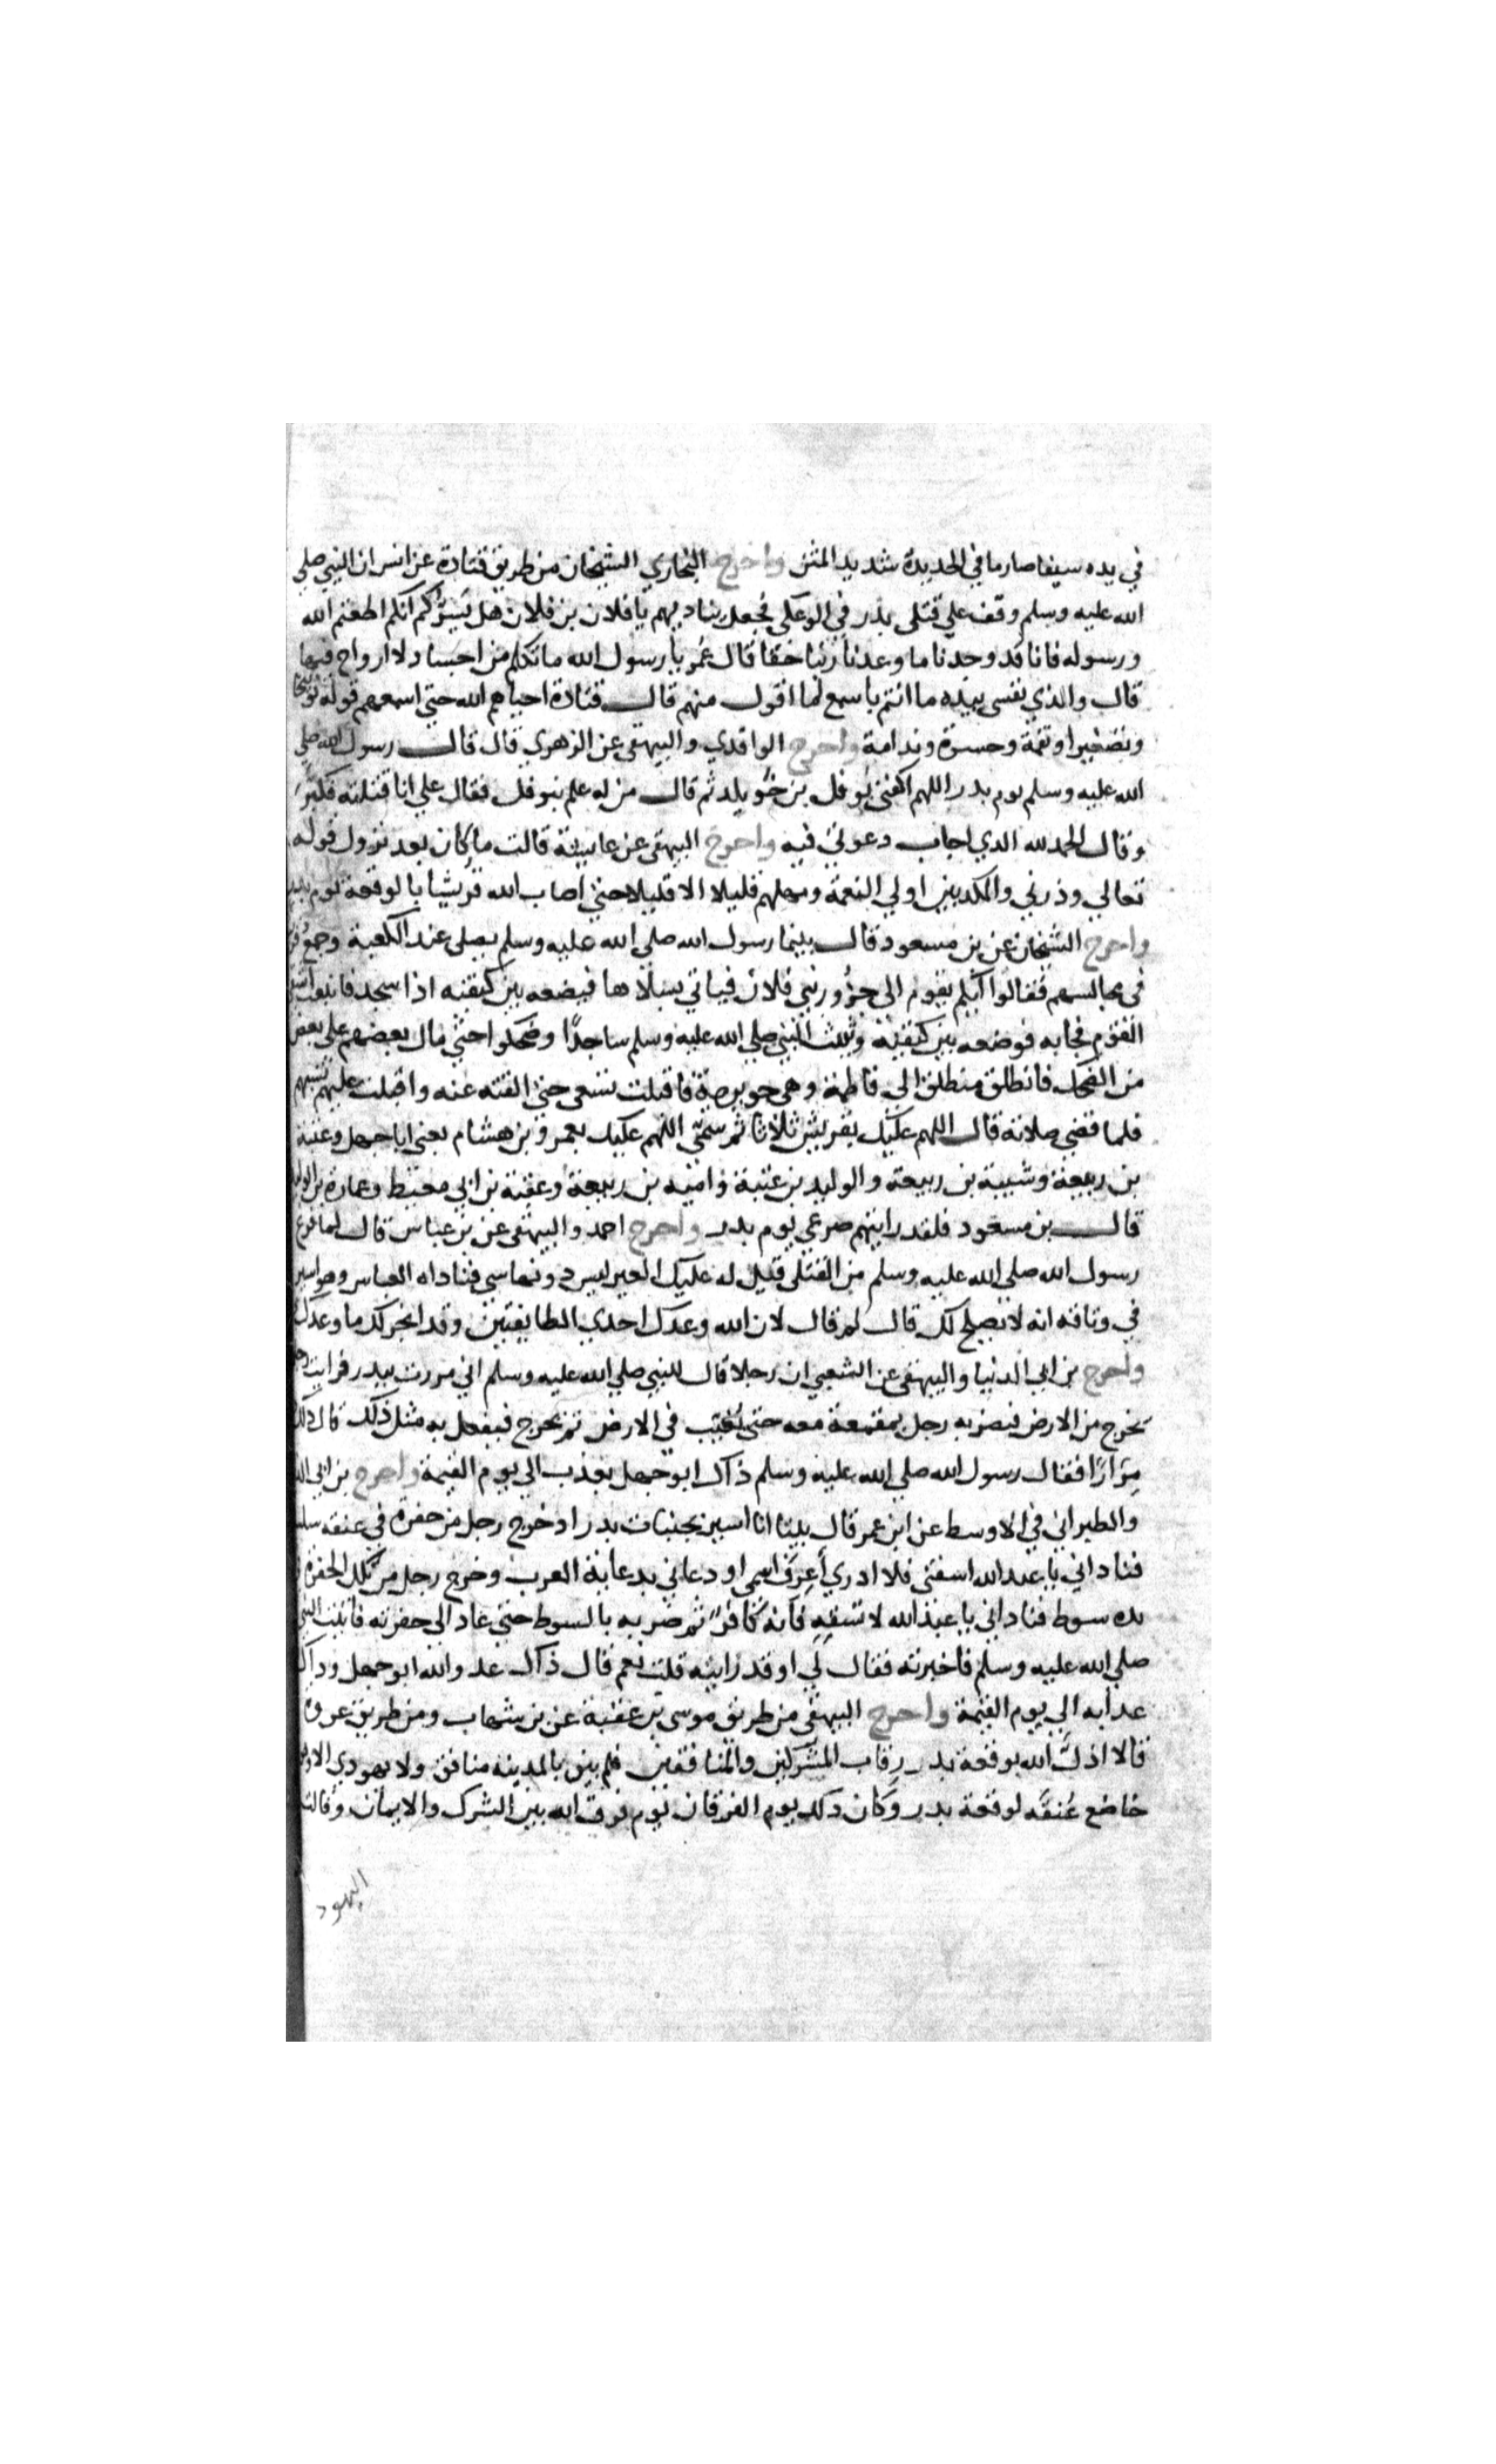 في يده سيفا صارما في الحديدة شديد المتن واخرج البخاري الشيخان من طريق قتادة عن انس ان النبي صلي
الله عليه وسلم وقف علي قتلى بدر في فجعل يناديهم يا فلان بن فلان هل يسركم انكم اطعتم الله
ورسوله فانا قد وجدنا ما وعدنا ربنا حقا قال عمر يا رسول الله ما تكلم من اجساد لا ارواح فيها
قال والذي نفسي بيده ما انتم باسمع لما اقول منهم قال قتادة احياهم الله حتي اسمعهم قوله توبيخا
وتصغيرا ونقمة وحسرة وندامة واخرج الواقدي والبيهقي عن الزهري قال قال رسول الله صلي
الله عليه وسلم يوم بدر اللهم اكفني نوفل بن خويلد ثم قال من له علم بنوفل فقال علي انا قتلته فكبر
وقال الحمد لله الذي اجاب دعوتي فيه واخرج البيهقي عن عايشة قالت ما كان بعد نزول قوله
تعالي وذرني والمكذبين اولي النعمة ومهلهم قليلا الا قليلا حتي اصاب الله قريشا بالوقعة يوم بدر
واخرج الشيخان عن بن مسعود قال بينما رسول الله صلي الله عليه وسلم يصلي عند الكعبة وجمع
في مجالسهم فقالوا ايكم يقوم الي جزور بني فلان فياتي بسلاها فيضعه بين كتفيه اذا سجد فانبعث اشقي
القوم فجا به فوضعه بين كتفيه وثبت النبي صلي الله عليه وسلم ساجدا وضحكوا حتي مال بعضهم علي بعض
من الضحك فانطلق منطلق الي فاطمة وهي جويرية فاقبلت تسعي حتي القته عنه واقبلت عليهم تسبهم
فلما قضي صلاته قال اللهم عليك بقريش ثلاثا ثم سمي اللهم عليك بعمرو بن هشام يعني ابا جهل وعتبة
بن ربيعة وشيبة بن ربيعة والوليد بن عتبة وامية بن ربيعة وعقبة بن ابي معيط وعمارة بن الوليد
قال بن مسعود فلقد رايتهم صرعي يوم بدر واخرج احمد والبيهقي عن بن عباس قال لما فرغ
رسول الله صلي الله عليه وسلم من القتلي قيل له عليك العير ليس دونها شي فناداه العباس وهو اسير
في وثاقه انه لا يصلح لك قال لم قال لان الله وعدك احدي الطايفتين وقد انجز لك ما وعدك
واخرج بن ابي الدنيا والبيهقي عن الشعبي ان رجلا قال للنبي صلي الله عليه وسلم اني مررت ببدر فرايت رجلا
يخرج من الارض فيضربه رجل بمقمعة معه حتي يغيب في الارض ثم يخرج فيفعل به مثل ذلك قال ذلك
مرارا فقال رسول الله صلي الله عليه وسلم ذاك ابو جهل يعذب الي يوم القيمة واخرج بن ابي الد
والطبراني في الاوسط عن ابن عمر قال بينا انا اسير بجنبات بدر اذ خرج رجل من حفرة في عنقه سلسلة
فناداني يا عبد الله اسقني فلا ادري أعرف اسمي او دعاني بدعاية العرب وخرج رجل من تلك الحفرة في
يده سوط فناداني يا عبد الله لا تسقه فانه كافر ثم ضربه بالسوط حتي عاد الي حفرته فاتيت النبي
صلي الله عليه وسلم فاخبرته فقال لي او قد رايته قلت نعم قال ذاك عدو الله ابو جهل وذاك
عذابه الي يوم القيمة واخرج البيهقي من طريق موسي بن عقبة عن بن شهاب ومن طريق عروة
قالا اذل الله بوقعة بدر رقاب المشركين والمنافقين فلم يبق بالمدينه منافق ولا يهودي الا وهو
خاضع عنقه لوقعة بدر وكان ذلك يوم الفرقان يوم فرق الله بين الشرك والايمان وقالت
اليهود